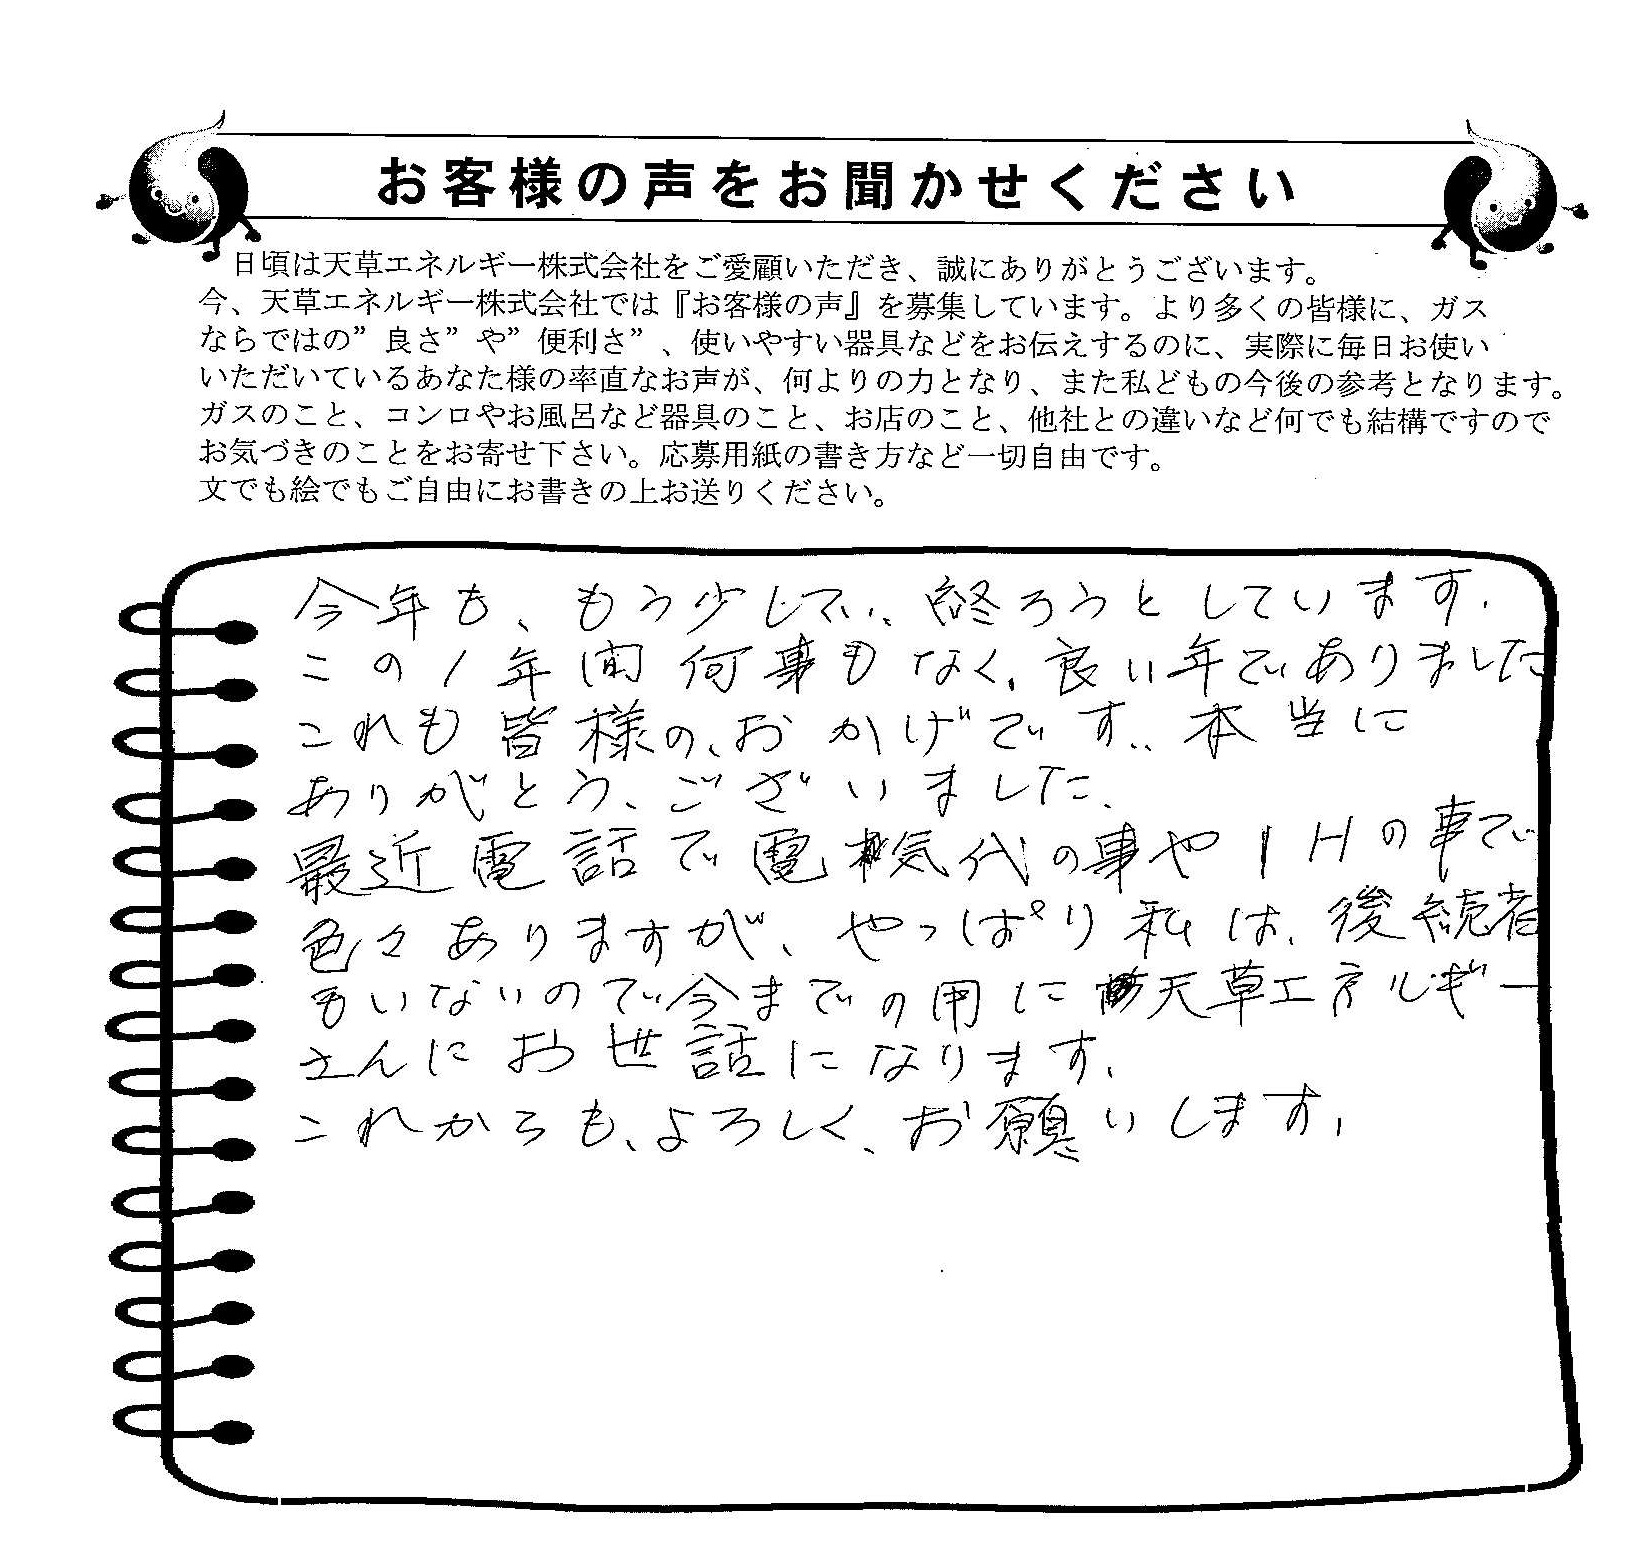 お客様の声をお聞かせください
日頃は天草エネルギー株式会社をご愛顧いただき、誠にありがとうございます。
今、天草エネルギー株式会社では『お客様の声』を募集しています。より多くの皆様に、ガス
ならではの”良さ”や”便利さ”、使いやすい器具などをお伝えするのに、実際に毎日お使い
いただいているあなた様の率直なお声が、何よりの力となり、また私どもの今後の参考となります。
ガスのこと、コンロやお風呂など器具のこと、お店のこと、他社との違いなど何でも結構ですので
お気づきのことをお寄せ下さい。応募用紙の書き方など一切自由です。
文でも絵でもご自由にお書きの上お送りください。
今年も、もう少しで、終ろうとしています.
この1年間何事もなく、良い年でありました
これも皆様の、おかげです.. 本当に
ありがとう、ございました、
最近電話で電気代の事やIHの事で
色々ありますが、やっぱり私は、後続者
もいないので今までの用に天草エネルギー
さんにお世話になります、
これからも、よろしく、お願いします,